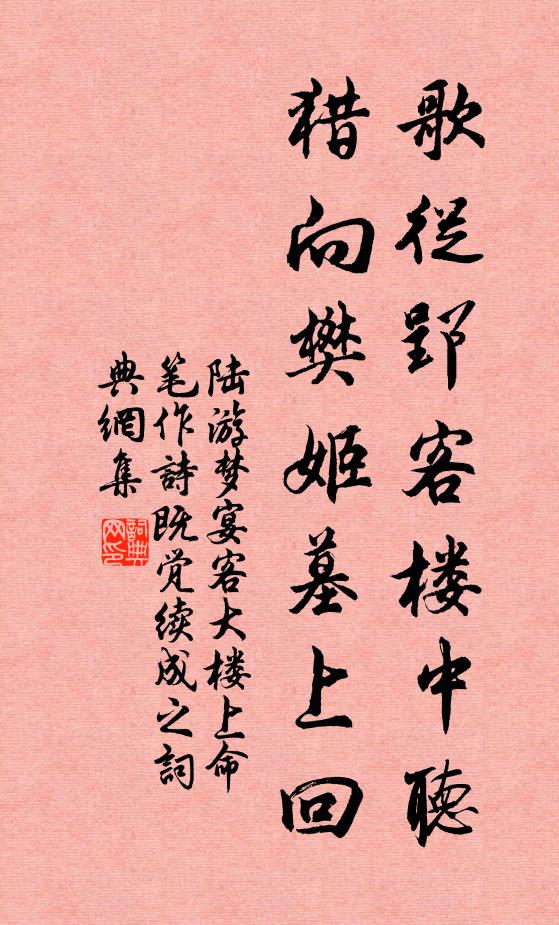 歌從郢客楼中聽
猎向樊姬墓上回
陆游梦宴客大楼上命
笔作詩既觉续成之詞
典網集
詞典网印